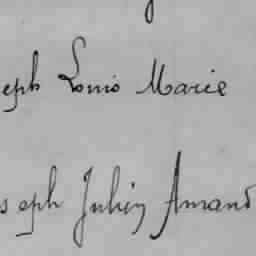 eph Louis Marie
seph Julien Amand